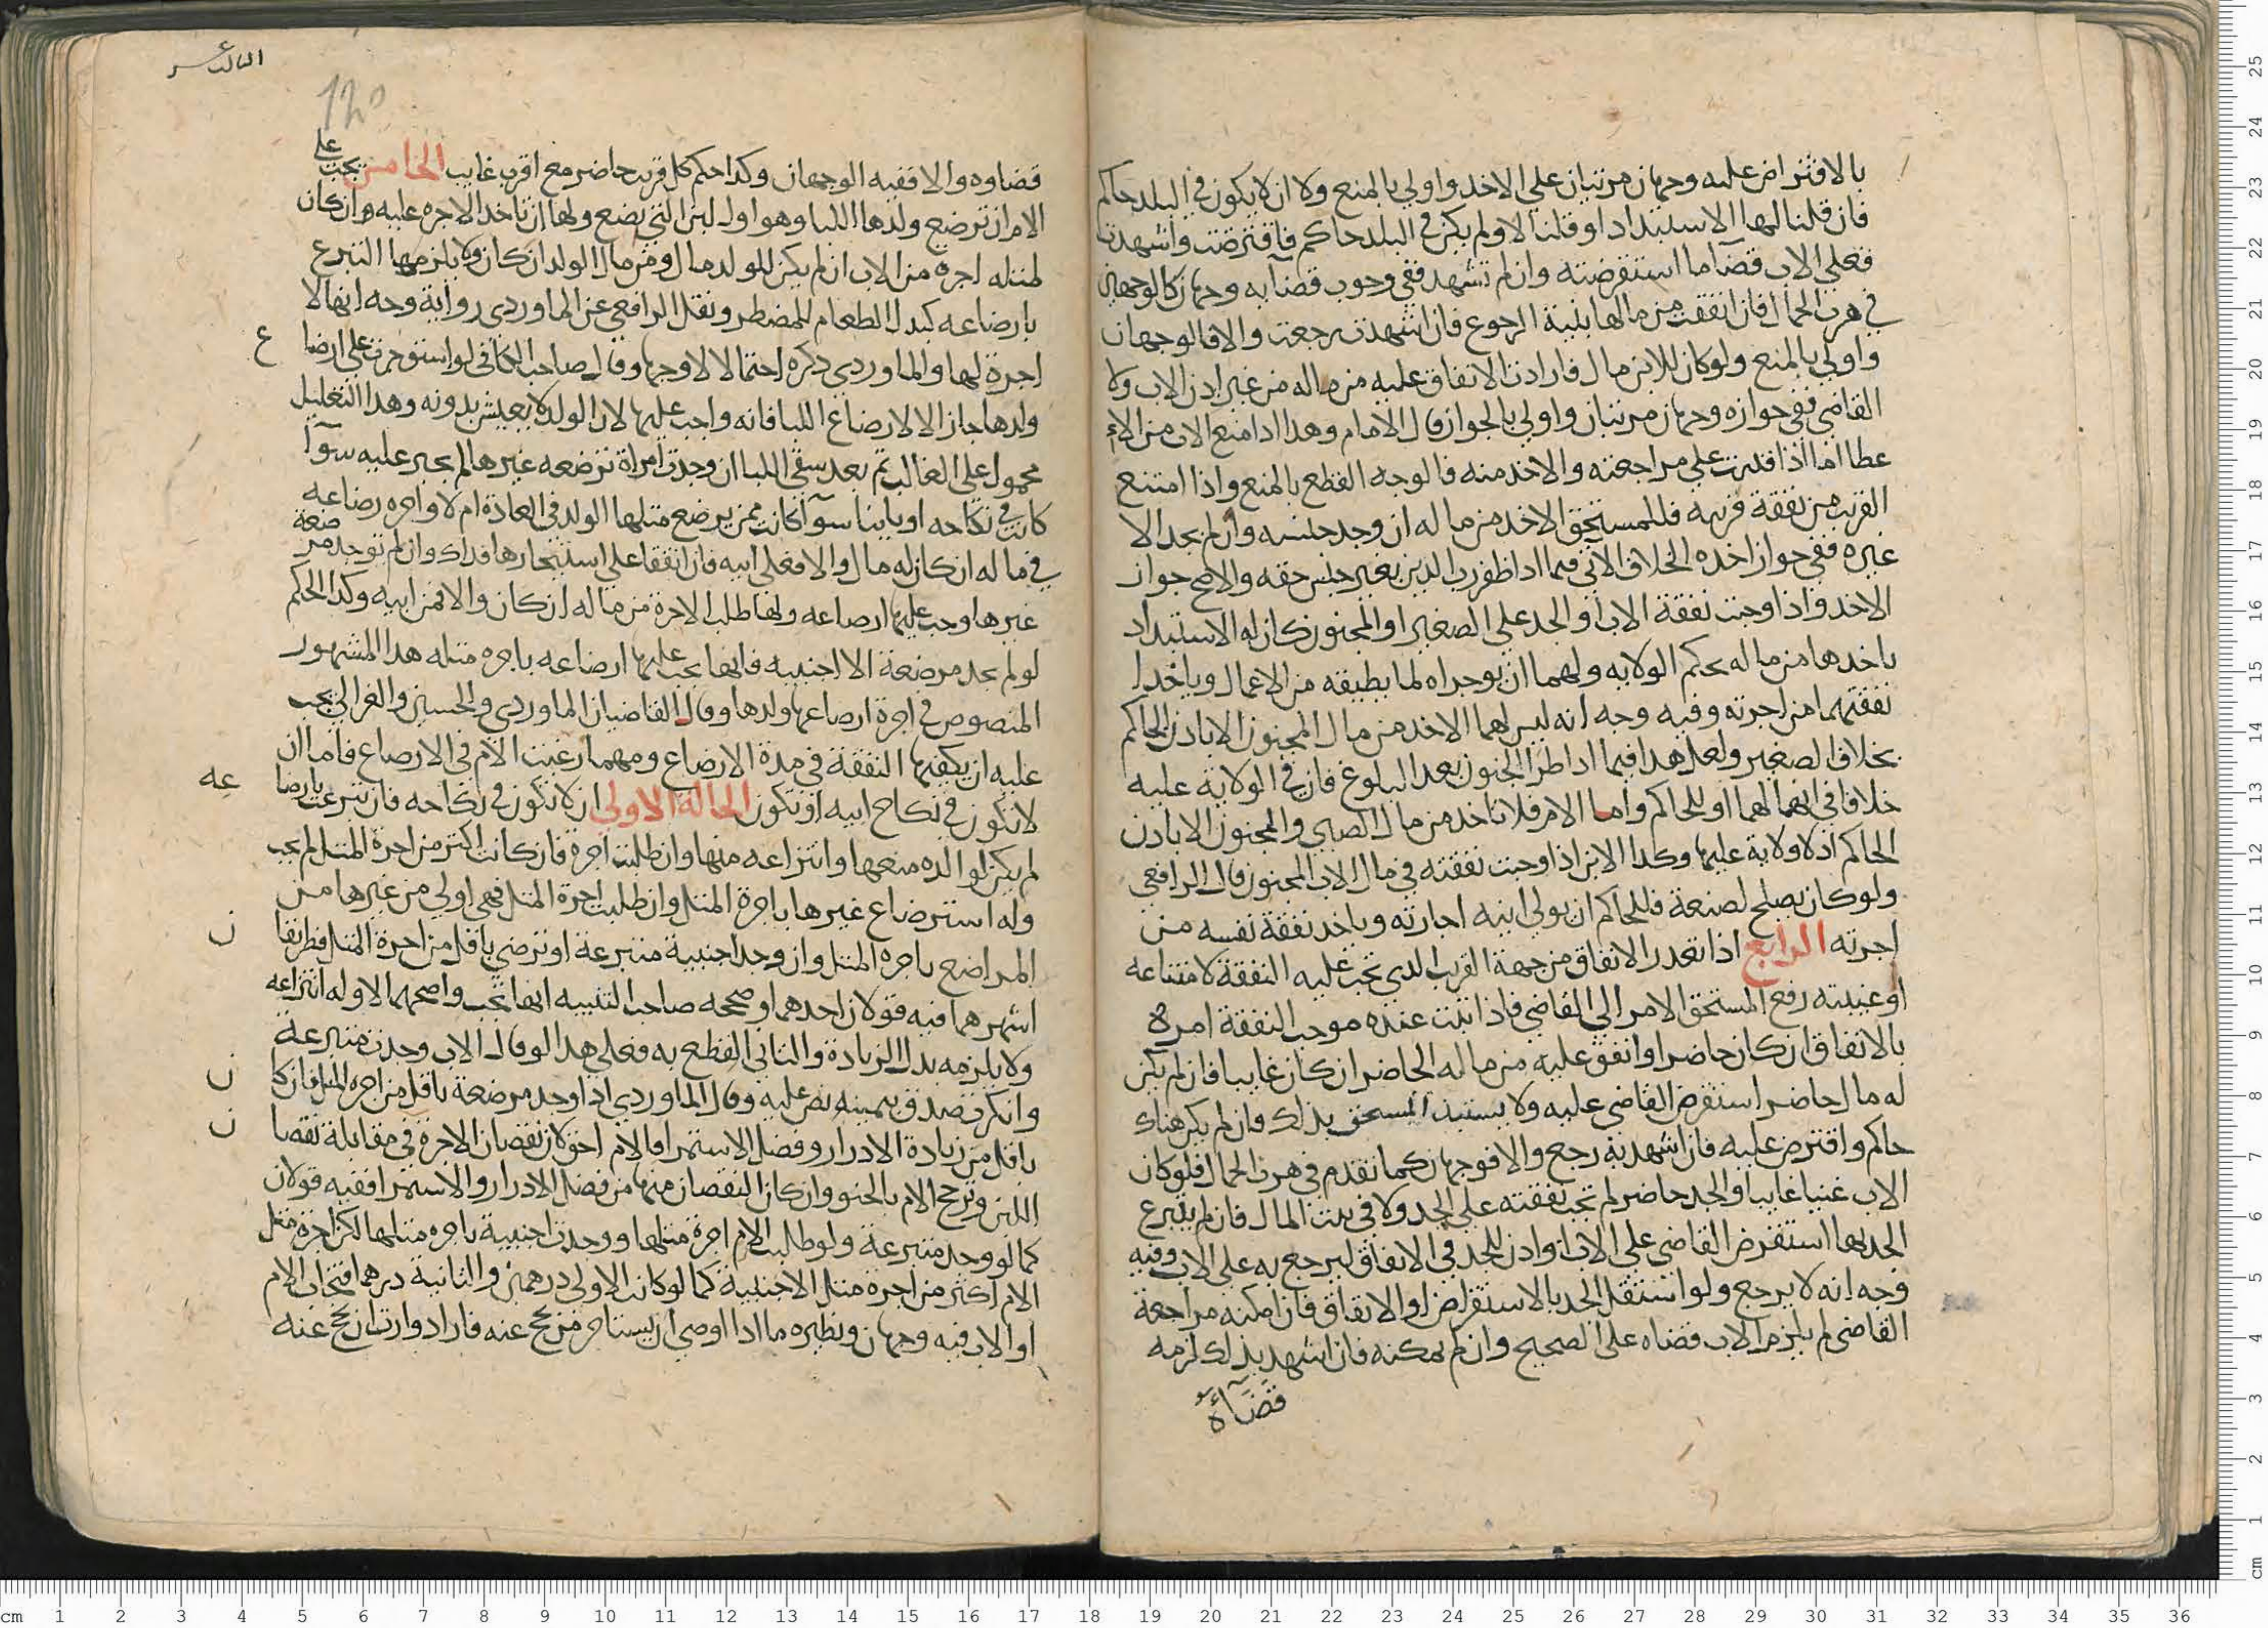 بالاقتراض عليه وجهان مرتبان علي الاخذ واولي بالمنع ولا ان لا يكون في البلد حاكم
فان قلنا لها الاستبداد او قلنا لا ولم يكن في البلد حاكم فاقترضت واشهدت
فعلي الاب قضآ ما استقرضته وان لم تشهد ففي وجوب قضآيه وجهان كالوجهان
في هرب الجمال فان انفقت من مالها بنية الرجوع فان اشهدت رجعت والا فالوجهان
واولي بالمنع ولو كان للابن مال فارادت الانفاق عليه من ماله من غير اذن الاب ولا
القاضي ففي جوازه وجهان مرتبان واولي بالجواز قال الامام وهذا اذا منع الاب من الاء
عطا اما اذا قدرت علي مراجعته والاخذ منه فالوجه القطع بالمنع واذا امتنع
القريب من نفقة قريبه فللمستحق الاخذ من ماله ان وجد جنسه وان لم يجد الا
غيره ففي جواز اخذه الخلاف الاتي فيما اذا ظفر رب الدين بغير جنس حقه والاصح جواز
الاخذ واذا وجبت نفقة الاب او الجد علي الصغير او المجنون كان له الاستبداد
باخذها من ماله بحكم الولايه ولهما ان يوجراه لما يطيقه من الاعمال وياخذا
نفقتهما من اجرته وفيه وجه انه ليس لهما الاخذ من مال المجنون الا باذن الحاكم
بخلاف الصغير ولعل هذا فيما اذا طرا الجنون بعد البلوغ فان في الولاية عليه
خلافا في انها لهما او للحاكم واما الام فلا تاخذ من مال الصبي والمجنون الا باذن
الحاكم اذ لا ولاية عليهما وكذا الابن اذا وجبت نفقته في مال الاب المجنون قال الرافعي
ولو كان يصلح لصنعة فللحاكم ان يولي ابنه اجارته وياخذ نفقة نفسه من
اجرته الرابع اذا تعذر الانفاق من جهة القريب الذي تجب عليه النفقة لامتناعه
او غيبته رفع المستحق الامر الي القاضي فاذا ثبت عنده موجب النفقة امره
بالانفاق ان كان حاضرا وانفق عليه من ماله الحاضر ان كان غايبا فان لم يكن
له مال حاضر استقرض القاضي عليه ولا يستبد المستحق بذلك فان لم يكن هناك
حاكم واقترض عليه فان اشهد به رجع والا فوجهان كما تقدم في هرب الجمال فلو كان
الاب غنيا غايبا والجد حاضر لم تجب نفقته علي الجد ولا في بيت المال فان لم يتبرع
الجد بها استقرض القاضي علي الاب او اذن للجد في الانفاق ليرجع به علي الاب وفيه
وجه انه لا يرجع ولو استقل الجد بالاستقراض او الانفاق فان امكنه مراجعة
القاضي لم يلزم الاب قضاه علي الصحيح وان لم يمكنه فان اشهد بذلك لزمه
قضآؤه
الثالث عشر
120
قضاوه والا ففيه الوجهان وكذا حكم كل قريب حاضر مع اقرب غايب الخامس يجب علي
الام ان ترضع ولدها اللبا وهو اول لبن التي تضع ولها ان تاخذ الاجره عليه وان كان
لمثله اجرة من الاب ان لم يكن للولد مال ومن مال الولد ان كان ولا يلزمها التبرع
بارضاعه كبدل الطعام للمضطر ونقل الرافعي عن الماوردي رواية وجه انها لا
اجرة لها والماوردي ذكره احتمالا لا وجها وقال صاحب الكافي لو استوجرت علي ارضا ع
ولدها جاز الا لارضاع اللبا فانه واجب عليها لان الولد لا يعيش بدونه وهذا التعليل
محمول علي الغالب ثم بعد سقي اللبا ان وجدت امراة ترضعه غيرها لم يجبر عليه سوآ
كانت في نكاحه او باينا سوآ كانت ممن يرضع مثلها الولد في العادة ام لا واجره رضاعه
في ماله ان كان له مال والا فعلي ابيه فان اتفقا علي استيجارها فذاك وان لم توجد مرضعة
غيرها وجب عليها ارضاعه ولها طلب الاجرة من ماله ان كان والا فمن ابيه وكذا الحكم
لو لم يجد مرضعة الا اجنبيه فانها يجب عليها ارضاعه باجره مثله هذا المشهور
المنصوص في اجرة ارضاعها ولدها وقال القاضيان الماوردي والحسين والغزالي يجب
عليه ان يكفيها النفقة في مدة الارضاع ومهما رغبت الام في الارضاع فاما ان
لا تكون في نكاح ابيه او تكون الحالة الاولي ان لا تكون في نكاحه فان تبرعت بارضا عه
لم يكن لوالده منعها وانتزاعه منها وان طلبت اجرة فان كانت اكثر من اجرة المثل لم يجب
وله استرضاع غيرها باجرة المثل وان طلبت اجرة المثل فهي اولي من غيرها من
المراضع باجره المثل وان وجد اجنبية متبرعة او ترضي باقل من اجرة المثل فطريقا ن
اشهرهما فيه قولان احدهما وصححه صاحب التنبيه انها تجب واصحهما لا وله انتزاعه
ولا يلزمه بذل الزيادة والثاني القطع به فعلي هذا لو قال الاب وجدت متبرعة
وانكرت صدق بيمينه نص عليه وقال الماوردي اذا وجد مرضعة باقل من اجره المثل فان كا ن
باقل من زيادة الادرار وفضل الاستمرا فالام احق لان نقصان الاجرة في مقابلة نقصا ن
اللبن وترجح الام بالحنو وان كان النقصان منها من فضل الادرار والاستمرا ففيه قولان
كما لو وجد متبرعة ولو طلبت الام اجرة مثلها ووجدت اجنبية باجره مثلها لكن اجرة مثل
الام اكثر من اجرة مثل الاجنبية كما لو كانت الاولي درهمين والثانية درهما فتجاب الام
او الاب فيه وجهان ونظيره ما اذا اوصي ان يستاجر من يحج عنه فاراد وارث ان يحج عنه